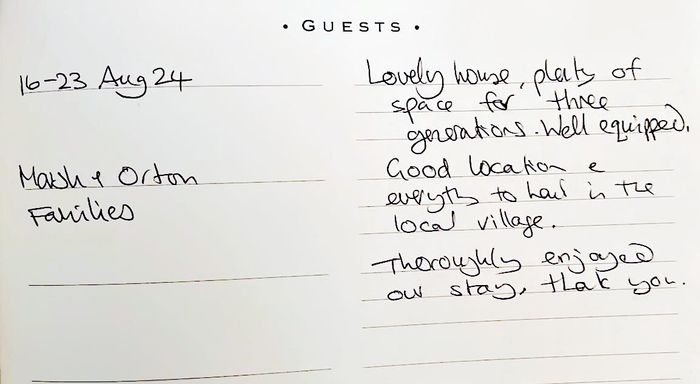 • GUESTS •
16-23 Aug 24
Marsh & Orton
Families
Lovely house, plenty of
space for three
generations. Well equipped.
Good location &
everything to hand in the
local village.
Thoroughly enjoyed
our stay, thank you.